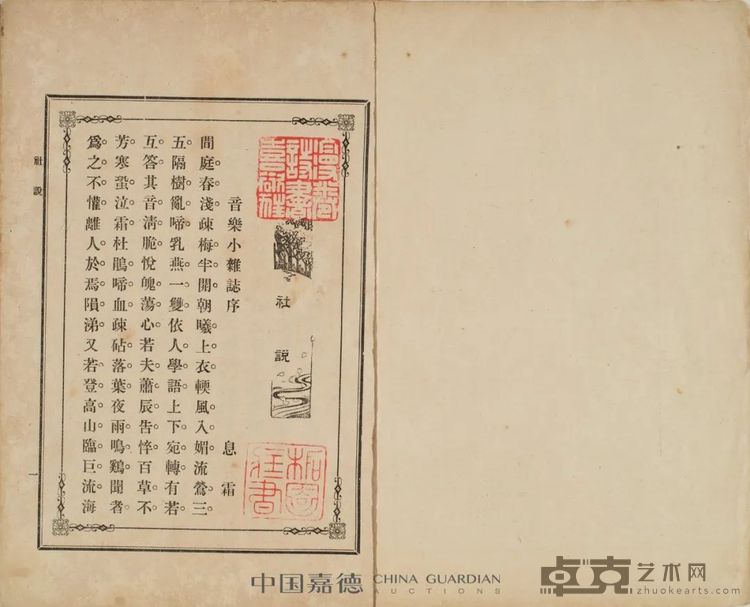 社說
音樂小雜誌序　息霜
間庭春淺。疎梅半開。朝曦上衣。輭風入媚。流鶯三
五。隔樹亂啼。乳燕一雙。依人學語。上下宛轉。有若
互答。其音清脆。悅魄蕩心。若夫蕭辰告悴。百草不
芳。寒蛩泣霜。杜鵑啼血。疎砧落葉。夜雨鳴鷄。聞者
爲之不懽。離人於焉隕涕。又若登高山。臨巨流。海
社說
一
中国嘉德 CHINA GUARDIAN
AUCTIONS
卓克艺术网
zhuokearts.com